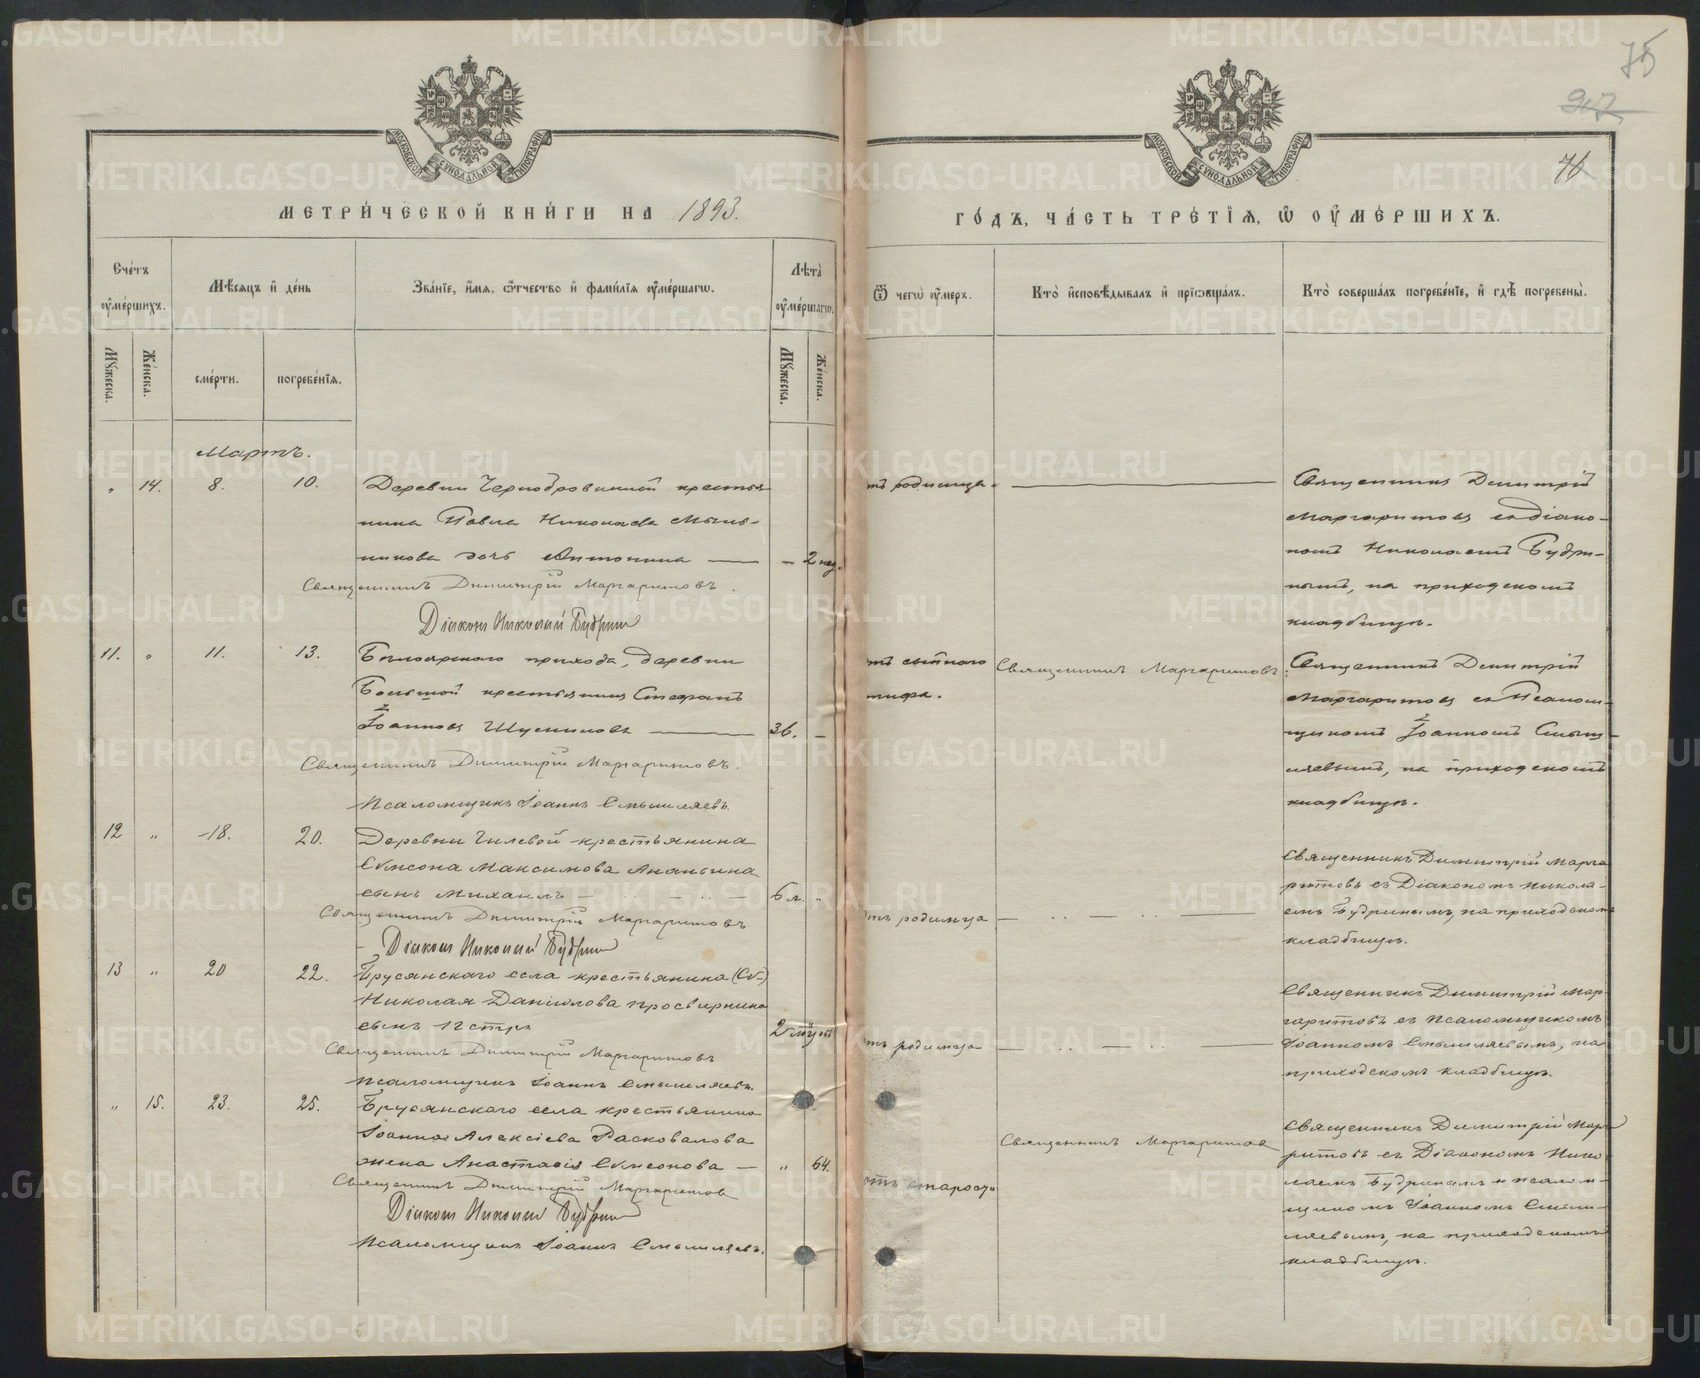 75
217
76
МЕТРИЧЕСКОЙ КНИГИ НА 1893.
ГОДЪ, ЧАСТЬ ТРЕТІЯ, Ѿ ОУМЕРШИХЪ.
Счетъ оумершихъ.
Мѣсяцъ и день
Званіе, имя, отчество и фамилія оумершагѡ.
Лѣта оумершагѡ.
Ѿ чегѡ оумеръ.
Кто исповѣдывалъ и пріѡбщалъ.
Кто совершалъ погребеніе, и гдѣ погребены.
Мужеска.
Женска.
смерти.
погребенія.
Мужеска.
Женска.
Мартъ.
" 14. 8. 10. Деревни крестья-
нина Павла Николаева Мыль-
никова дочь Антонина — — 2 нед.
Священникъ Димитрій Маргаритовъ.
Діаконъ Николай Будринъ
отъ родимца.
Священникъ Димитрій
Маргаритовъ съ діако-
номъ Николаемъ Будри-
нымъ, на приходскомъ
кладбищѣ.
11. " 11. 13. Бѣлоярскаго прихода, деревни
Большой крестьянинъ Стефанъ
Іоанновъ Шумиловъ — 36. —
Священникъ Димитрій Маргаритовъ.
Псаломщикъ Іоаннъ Смышляевъ.
отъ сыпного
тифа.
Священникъ Маргаритовъ.
Священникъ Димитрій
Маргаритовъ съ Псалом-
щикомъ Іоанномъ Смыш-
ляевымъ, на приходскомъ
кладбищѣ.
12 " 18. 20. Деревни Гилевой крестьянина
Сѵмеона Максимова Ананьина
сынъ Михаилъ — 6 м. "
Священникъ Димитрій Маргаритовъ
Діаконъ Николай Будринъ
отъ родимца
Священникъ Димитрій Марга-
ритовъ съ Діакономъ Никола-
емъ Будринымъ, на приходскомъ
кладбищѣ.
13 " 20 22. Брусянскаго села крестьянина
Николая Даніилова Просвирнина
сынъ Петръ
Священникъ Димитрій Маргаритовъ
Псаломщикъ Іоаннъ Смышляевъ.
отъ родимца
Священникъ Димитрій Мар-
гаритовъ съ Псаломщикомъ
Іоанномъ Смышляевымъ, на
приходскомъ кладбищѣ.
" 15. 23. 25. Брусянскаго села крестьянина
Іоанна Алексіева Расковалова
жена Анастасія Сѵмеонова — " 64.
Священникъ Димитрій Маргаритовъ
Діаконъ Николай Будринъ
Псаломщикъ Іоаннъ Смышляевъ.
отъ старости
Священникъ Маргаритовъ
Священникъ Димитрій Марга-
ритовъ съ Діакономъ Нико-
лаемъ Будринымъ и псалом-
щикомъ Іоанномъ Смыш-
ляевымъ, на приходскомъ
кладбищѣ.
METRIKI.GASO-URAL.RU